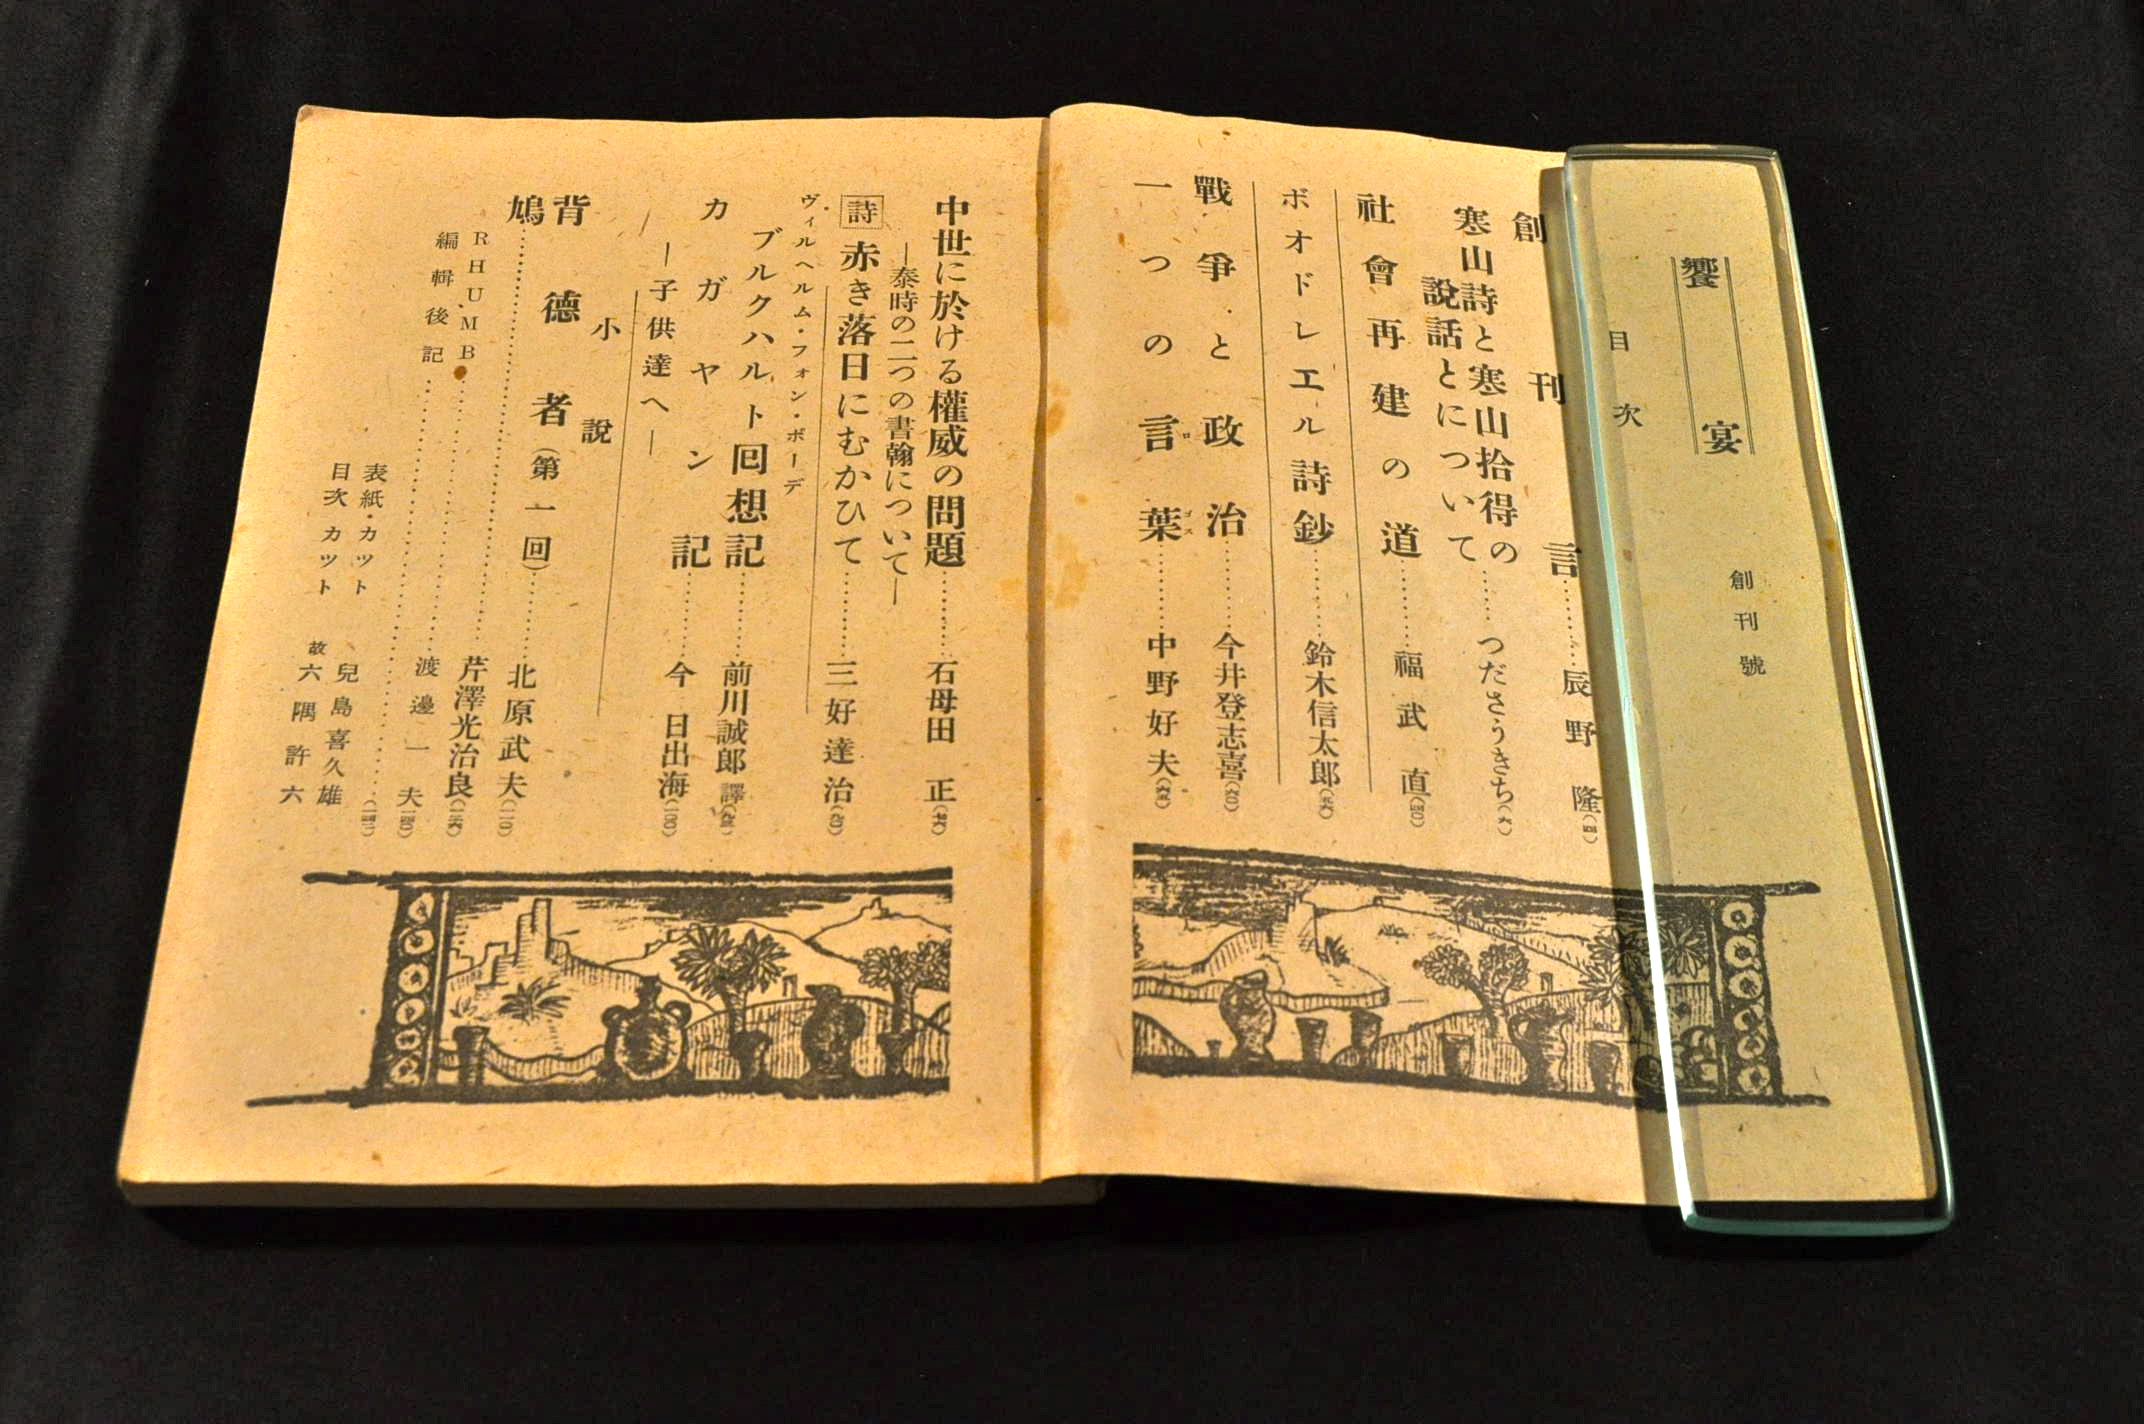 饗宴 創刊號
目次
創刊言……辰野隆(四)
寒山詩と寒山拾得の
說話とについて……つださうきち(六)
社會再建の道……福武直(四〇)
ボオドレエル詩鈔……鈴木信太郎(五六)
戰爭と政治……今井登志喜(六〇)
一つの言葉……中野好夫
ロゴス
中世に於ける權威の問題……石母田正(七六)
―泰時の二つの書翰について―
詩 赤き落日にむかひて……三好達治
ヴィルヘルム・フォン・ボーデ
ブルクハルト回想記……前川誠郎譯
カガヤン記……今日出海(一〇〇)
―子供達へ―
小說
背德者(第一回)……北原武夫(一一〇)
鳩……芹澤光治良
RHUMB……渡邊一夫(一四〇)
編輯後記……(一四一)
表紙・カット 兒島喜久雄
目次カット 故 六隅許六